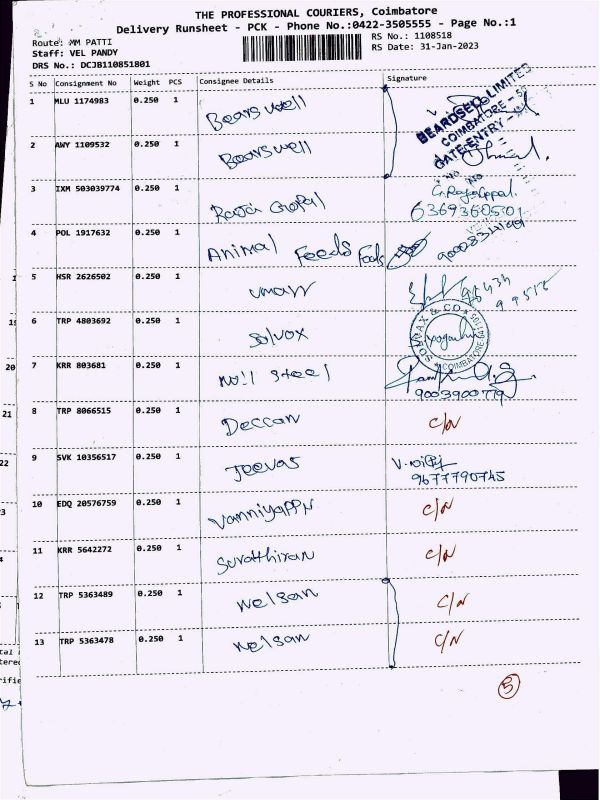 THE PROFESSIONAL COURIERS, Coimbatore
Delivery Runsheet - PCK - Phone No.:0422-3505555 - Page No.:1
Route: MM PATTI RS No.: 1108518
Staff: VEL PANDY RS Date: 31-Jan-2023
DRS No.: DCJB110851801
S No Consignment No Weight PCS Consignee Details Signature
1 MLU 1174983 0.250 1 Bearswell
BEARDSELL LIMITED
COIMBATORE
GATE ENTRY
2 AWY 1109532 0.250 1 Bearswell
3 IXM 503039774 0.250 1 Raja Gopal
6369360501
4 POL 1917632 0.250 1 Animal Feeds
5 HSR 2626502 0.250 1
6 TRP 4803692 0.250 1 Solvox
SOLVAX & CO
COIMBATORE
7 KRR 803681 0.250 1 Noll Steel
9003900779
8 TRP 8066515 0.250 1 Deccan C/N
9 SVK 10356517 0.250 1 Jeevas
9677790745
10 EDQ 20576759 0.250 1 Vanniyappn C/N
11 KRR 5642272 0.250 1 C/N
12 TRP 5363489 0.250 1 Nelsan C/N
13 TRP 5363478 0.250 1 Nelsan C/N
5
20
21
22